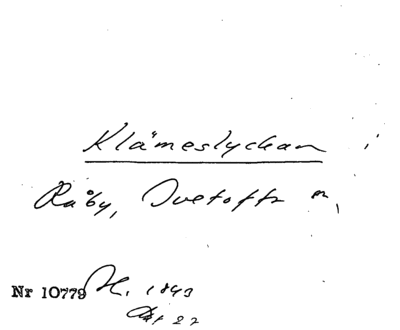 Klämeslyckan i
Råby, Ivetofta sn,
Nr 10779 H. 1843
Akt 27